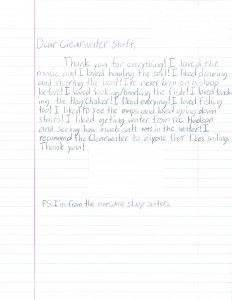 Dear Clearwater Staff,
Thank you for everything! I loved the
music and I loved hauling the sail! I liked steering
and the boat! I've never been on a sloop
before! I loved looking/handling the fish! I loved
the Hog Choker! I liked everying! I loved fishing
too! I liked to see the maps and loved going down
stairs! I liked getting water from the Hudson
and seeing how much salt was in the water! I
recommend the Clearwater to anyone that likes sailing.
Thank you!
P.S. I'm from the awesome sloop